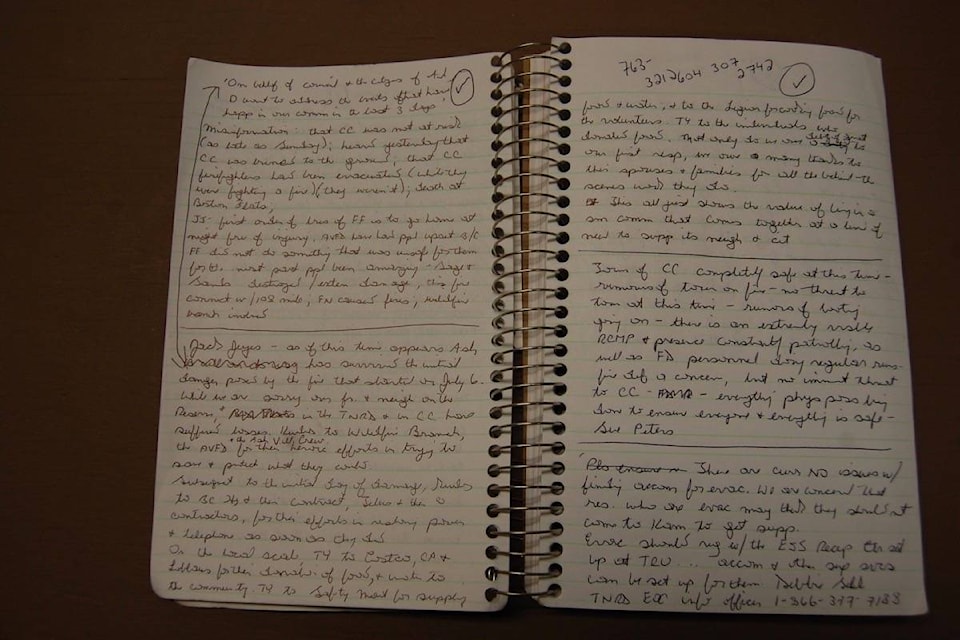 "On behalf of council & the citizens of Ash
I want to address the events that have
happ in our comm in the last 3 days.
Misinformation: that CC was not at risk
(as late as Sunday); heard yesterday that
CC was burned to the ground; that CC
firefighters had been evacuated (while they
were fighting a fire) (they weren't); death at
Boston Flats,
JJ: first order of bus of FF is to go home at
night free of injury, AVFD have had ppl upset b/c
FF did not do something that was unsafe for them
for the most part ppl been amazing - Sage &
Sands destroyed / exten damage, this fire
connect w/ 108 mile, FN caused fires, wildfire
branch
Jack Jeyes - as of this time appears Ash
has survived the initial
danger posed by the fire that started on July 6.
While we are sorry our fr. & neigh on the
Reserve, in the TNRD & in CC have
suffered losses. Thanks to Wildfire Branch,
& the Ash Vill Crew
the AVFD for their heroic efforts in trying to
save & protect what they could
Subsequent to the initial day of damage, thanks
to BC Hy & their contract, Telus & their
contractors, for their efforts in restoring power
& telephone as soon as they did
On the local scale, TY to Costco, CP &
for their donation of food, & water to
the community. TY to Safety Mart for supply
763-
3212604 307
2742
food & water, & to the for food for
the volunteers. TY to the individuals who
donated food. Not only do we owe to
our first resp, we owe many thanks to
their spouses & families for all the behind-the
scenes work they do.
This all just shows the value of living in a
sm comm that comes together at a time of
need to supp its neigh & cit
Town of CC completely safe at this time -
rumours of town on fire - no threat to
town at this time - rumors of looting
going on - there is an extremely visible
RCMP presence constantly patrolling, as
well as FD personnel doing regular runs -
fire def a concern, but no imminent threat
to CC - everything phys poss being
done to ensure everyone & everything is safe -
Sue Peters
There are curr NO issues w/
finding accom for evac. We are concerned that
res. who are evac may think they shouldn't
come to Kam to get supp.
Evac should reg w/ the ESS Recep Ctr set
up at TRU ... accom & other supp svcs
can be set up for them. Debbie Sell
TNRD EOC info officer 1-866-377-7188